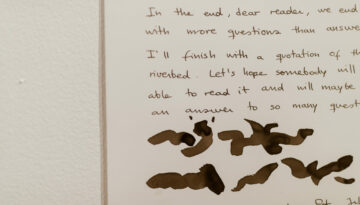 In the end, dear reader, we end
with more questions than answe
I'll finish with a quotation of th
riverbed. Let's hope somebody will
able to read it and will maybe
an answer to so many quest